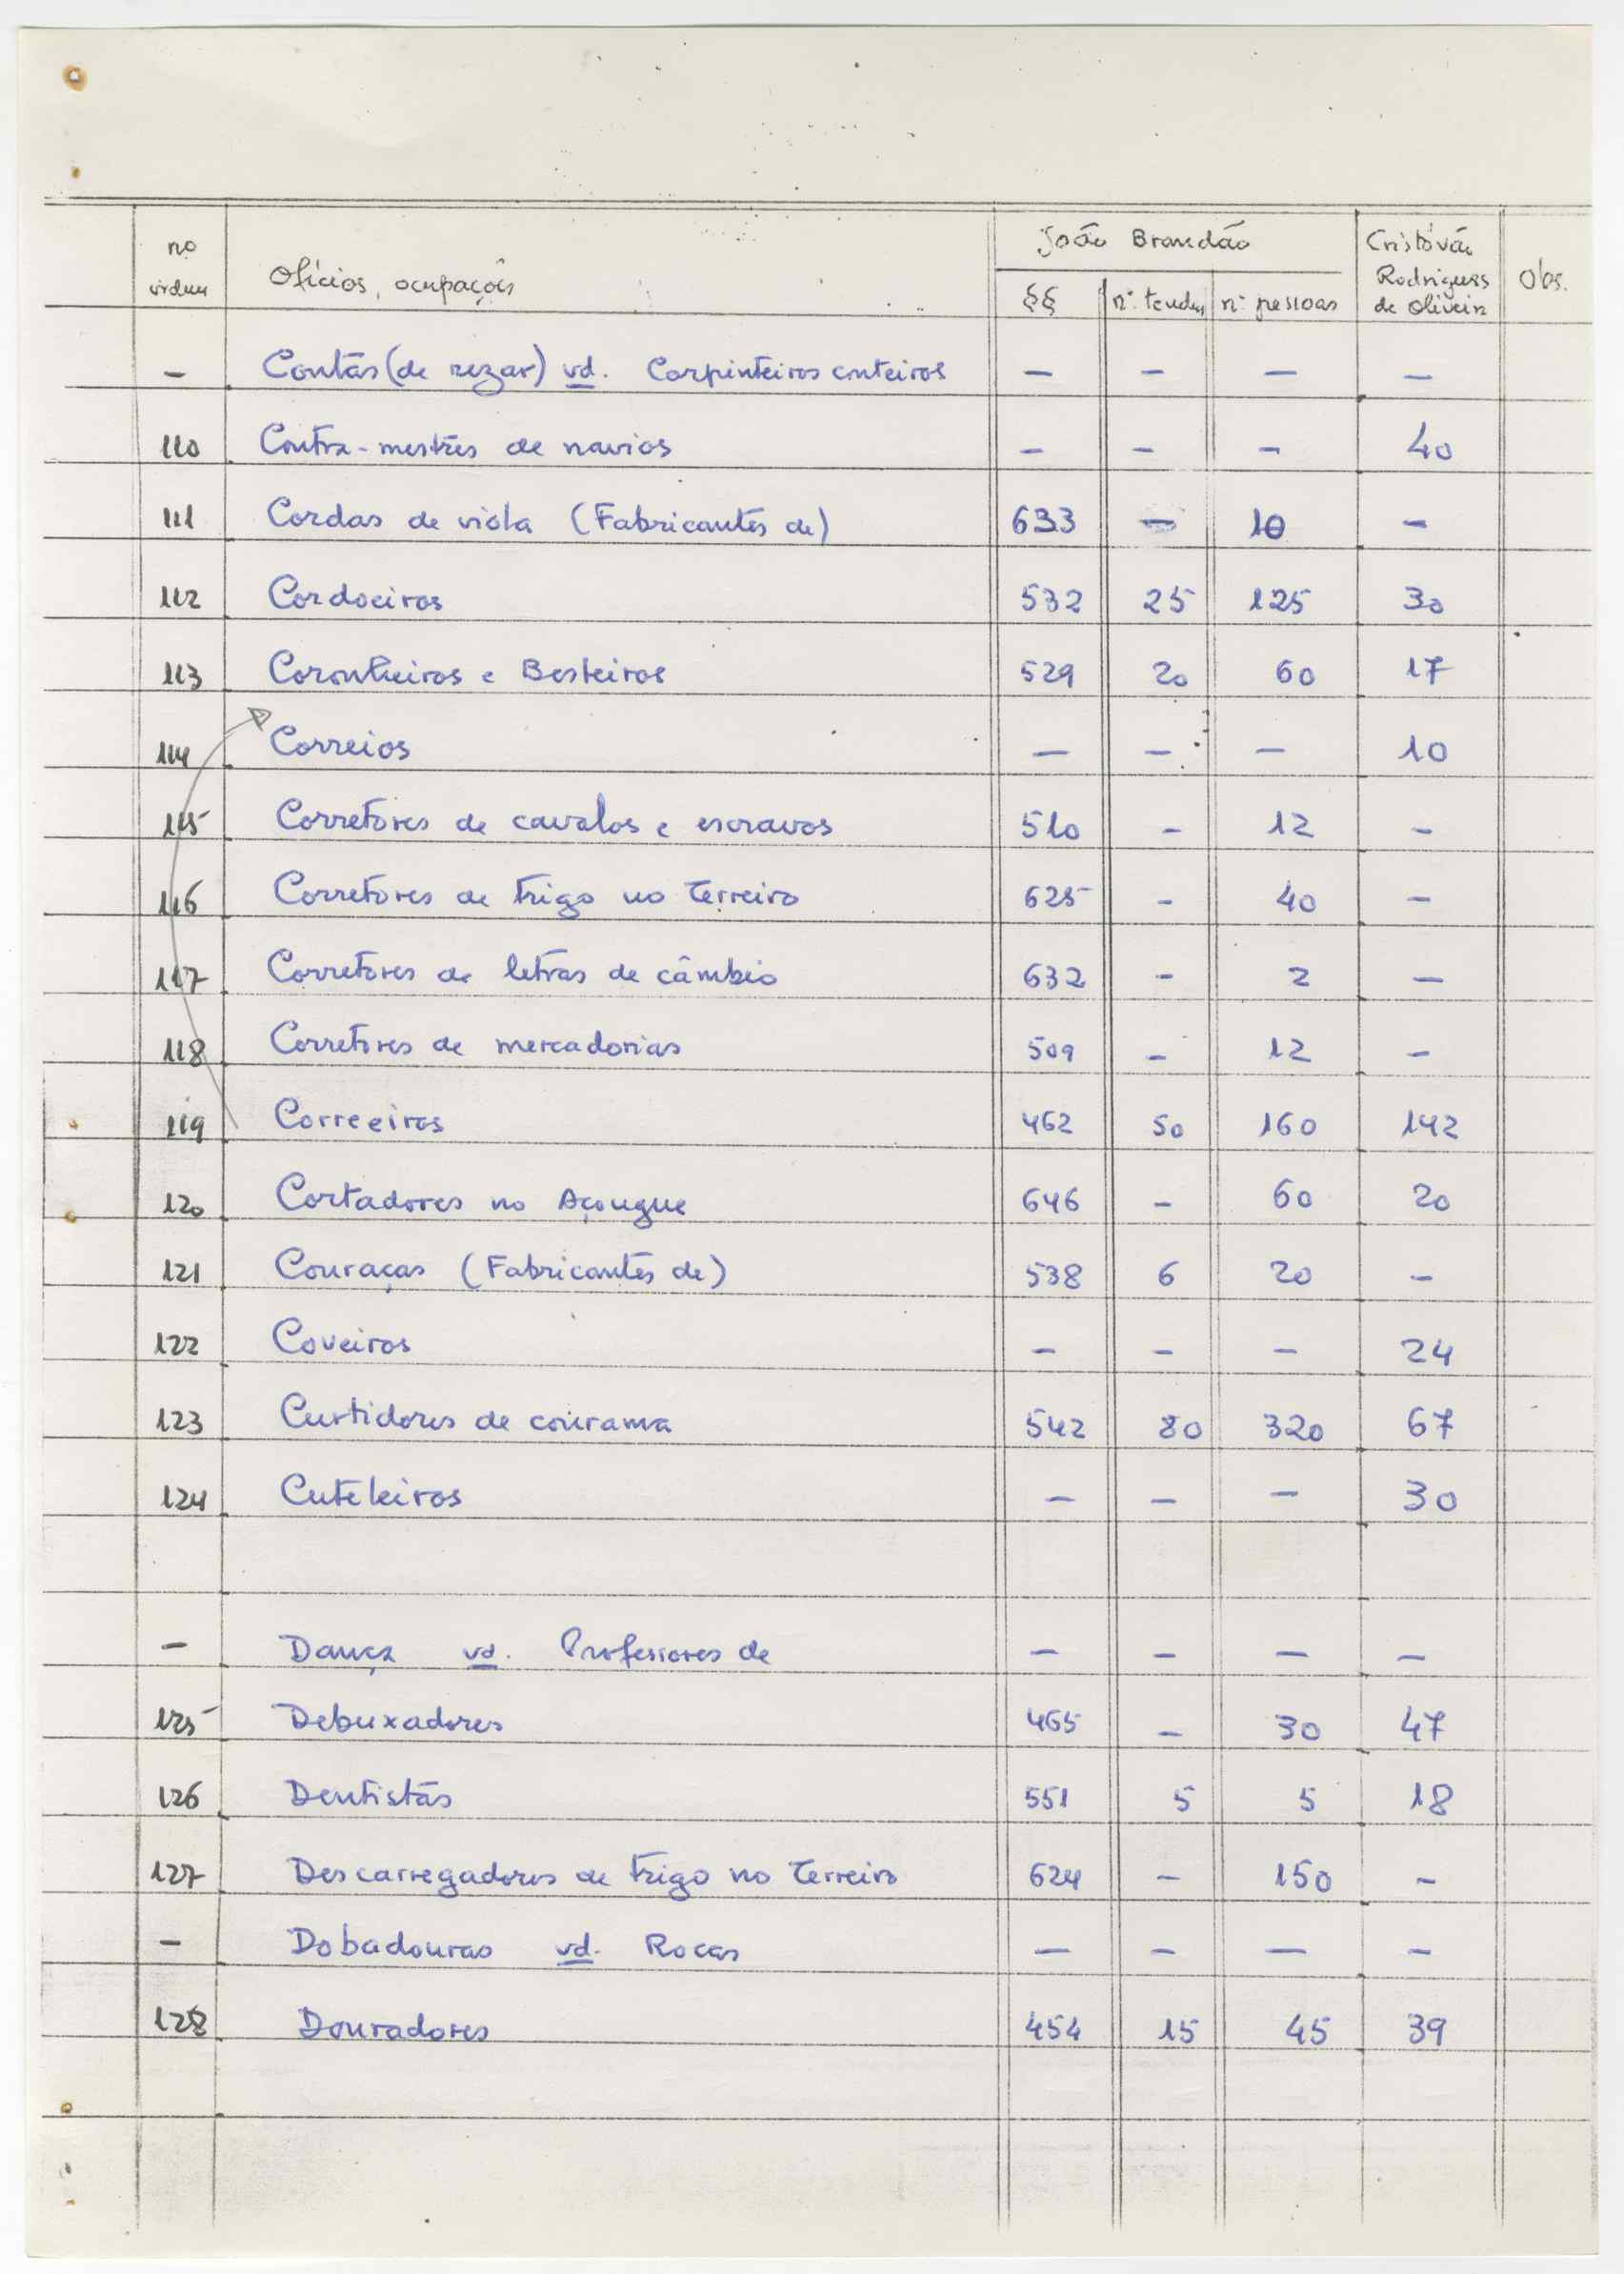 João Brandão
no ordem Ofícios, ocupações §§ nº tendas nº pessoas Cristóvão Rodrigues de Oliveira Obs.
- Contas (de rezar) vd. Carpinteiros conteiros - - - -
110 Contra-mestres de navios - - - 40
111 Cordas de viola (Fabricantes de) 633 - 10 -
112 Cordoeiros 532 25 125 30
113 Coronheiros e Besteiros 529 20 60 17
114 Correios - - - 10
115 Corretores de cavalos e escravos 510 - 12 -
116 Corretores de trigo no Terreiro 625 - 40 -
117 Corretores de letras de câmbio 632 - 2 -
118 Corretores de mercadorias 509 - 12 -
119 Correeiros 462 50 160 142
120 Cortadores no Açougue 646 - 60 20
121 Couraças (Fabricantes de) 538 6 20 -
122 Coveiros - - - 24
123 Curtidores de courama 542 80 320 67
124 Cuteleiros - - - 30
- Dança vd. Professores de - - - -
125 Debuxadores 465 - 30 47
126 Dentistas 551 5 5 18
127 Descarregadores de trigo no Terreiro 624 - 150 -
- Dobadouras vd. Rocas - - - -
128 Douradores 454 15 45 39